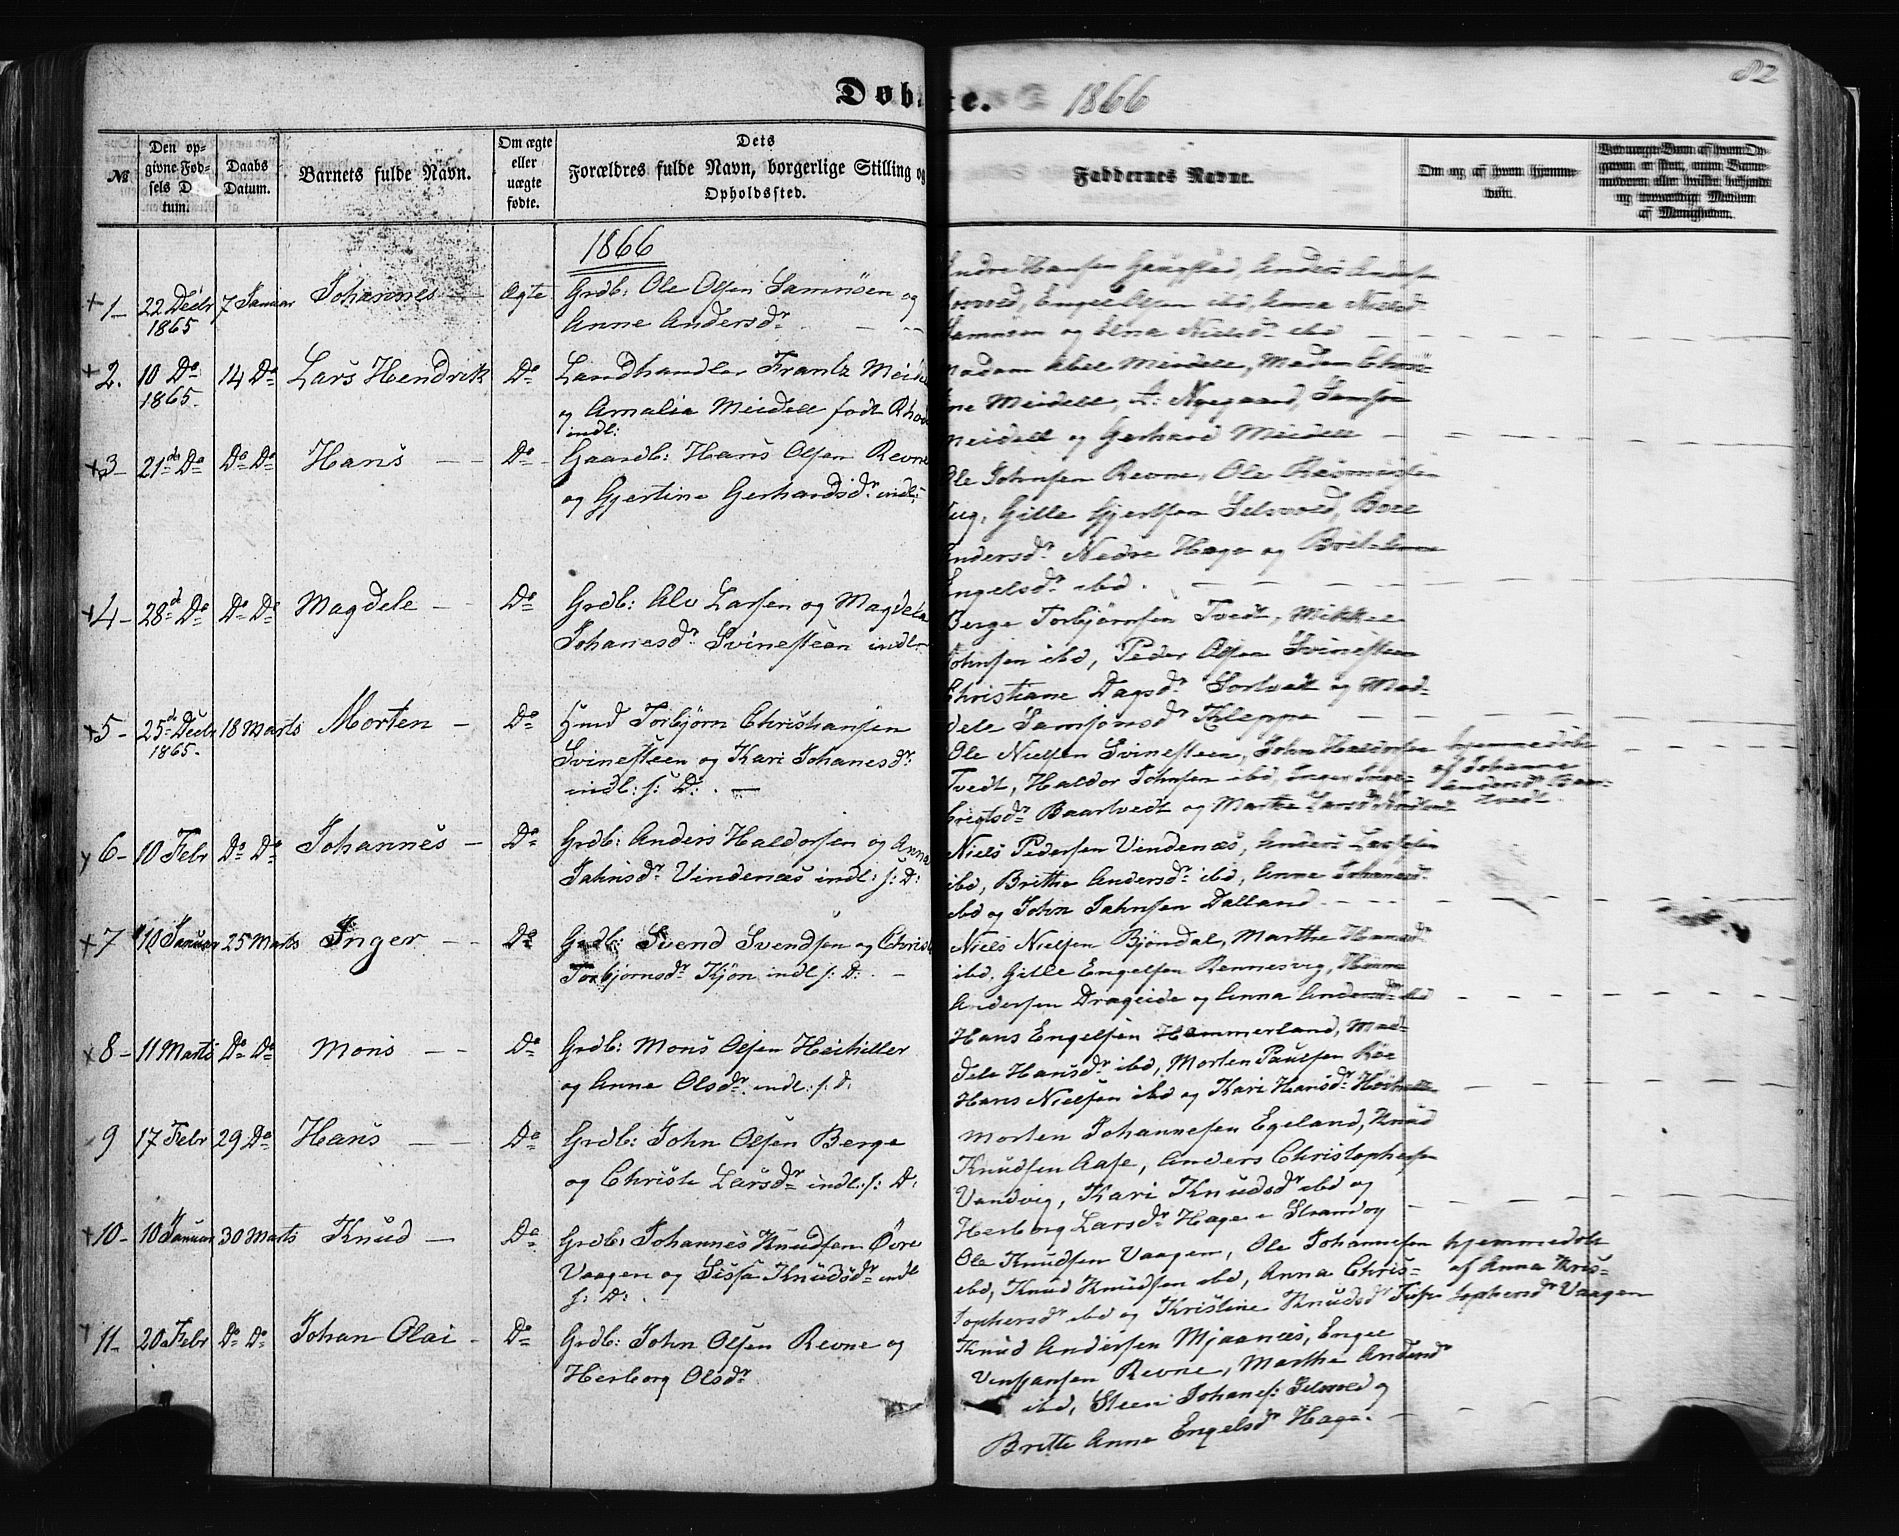 Døb
te. 1866
82
№
Den op-
givne Fød-
sels D
tum.
Daabs
Datum.
Barnets fulde Navn.
Om ægte
eller
uægte
fødte.
Dets
Forældres fulde Navn, borgerlige Stilling og
Opholdssted.
Faddernes Navne.
Om og af hvem hjemme-
døbt.
1866
1- 22 Decbr 1865 7 Januar Johannes Ægte Grdb: Ole Olsen Samnöen og
Anne Andersdr
Endre Hansen Gaugstad, Anders Anders
Engel Olsen ibd, Anna Nielsdr
Samnöen og Elna Nielsdr ibd
2. 10 Do 1865 14 Do Lars Hendrik Do Landhandler Frantz Meidel
og Amalia Meidell født Rhode
indl:
Madam Abel Meidell, Madam Chris-
ine Meidell, A: Nygaard, Samson
Meidell og Gerhard Meidell
3- 21de Do Do Do Hans Do Gaardb: Hans Olsen Revne
og Gjertine Gerhardsdr indl:
Ole Johnsen Revne, Ole Rasmusen
Gitle Gjertsen Selsvold,
Andersdr Nedre Hage og Brite Anne
Engelsdr ibd.
4- 28de Do Do Do Magdele Do Grdb: Alv Larsen og Magdela
Johanesdr Svinesteen indl
Berge Torbjørnsen Tvedt, Mikkel
Johnsen ibd, Peder Olsen Svinesteen
Christiane Dagsdr Sortvedt og Mag-
dele Samsonsdr Kleppe
5- 25de Decbr 1865. 18 Marts Morten Do Hmd Torbjörn Christiansen
Svinesteen og Kari Johanesdr
indl: s: D:
Ole Nielsen Svinesteen, John Haldorsen
Tvedt, Haldor Johnsen ibd, Inger Inge-
brigtsdr Baartvedt og Marthe Larsdr
hjemmedöbt
af Johanna
Andersdr Baar-
tvedt.
6- 10 Febr Do Do Johannes Do Grdb: Anders Haldorsen og Anna
Jahnsdr Vindenæs indl: s: D:
Niels Pedersen Vindenæs, Anders Larsen
ibd, Brithe Andersdr ibd, Anne Johanesdr
ibd og John Jahnsen Dalland
7 10 Januar 25 Marts Inger Do Grdb: Svend Svendsen og Christi
Torbjørnsdr Kjön indl s: D:
Niels Nielsen Bjöndal, Marthe Hansdr
ibd. Gitle Engelsen Rennesvig, Hans
Andersen Drageide og Anna Andersdr ibd
8- 11 Marts Do Do Mons Do Grdb: Mons Olsen Heihiller
og Anne Olsdr indl: s: D:
Hans Engelsen Hammerland, Mag-
dele Hansdr ibd, Morten Paulsen Röe
Hans Nielsen ibd og Kari Hansdr
9 17 Febr 29 Do Hans Do Grdb: John Olsen Berge
og Christi Larsdr indl: s: D:
Morten Johannesen Egeland, Knud
Knudsen Aase, Anders Christophersen
Vandvig, Kari Knudsdr ibd og
Herborg Larsdr Hage i Strandv
10- 10 Januar 30 Marts Knud Do Grdb: Johannes Knudsen Övre
Vaagen og Sissa Knudsdr indl
s: D:
Ole Knudsen Vaagen, Ole Johannesen
ibd, Knud Knudsen ibd, Anna Chris-
tophersdr ibd og Kristine Knudsdr
hjemmedöbt
af Anna Kris-
tophersdr Vaagen
11- 20 Febr Do Do Johan Olai Do Grdb: John Olsen Revne og
Herborg Olsdr
Knud Andersen Mjaanæs, Engel
Revne, Marthe Andersdr
ibd, Steen Johanes: Selsvold og
Britte Anne Engelsdr Hage.